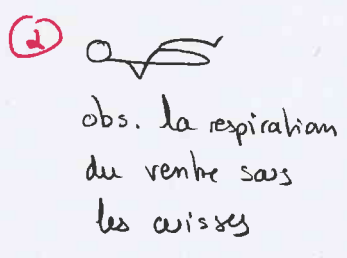 2
obs. la respiration
du ventre sous
les cuisses